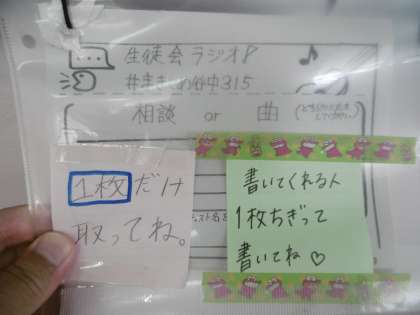 生徒会ラジオ♪
相談 or 曲
1枚だけ
取ってね。
書いてくれる人
1枚ちぎって
書いてね♡